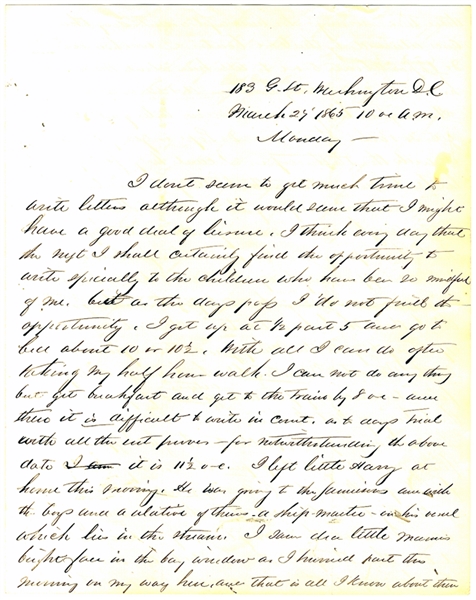 183 G. St. Washington D.C
March 27 1865 10 oc A.M.
Monday —
I dont seem to get much time to
write letters although it would seem that I might
have a good deal of leisure. I think every day that
the next I shall certainly find the opportunity to
write specially to the children who have been so mindful
of me. but as the days pass I do not find the
opportunity. I get up at ½ past 5 and go to
bed about 10 or 10½. With all I can do after
taking my half hour walk. I can not do any thing
but get breakfast and get to the trains by 8 oc — and
then it is difficult to write in court. as to days trial
with all the  proves — for notwithstanding the above
date I am it is 11½ o-c. I left little Harry at
home this morning. He was going to the  with
the boys and a relative of theirs — a ship-master — in his vessel
which lies in the stream. I saw dear little mamies
bright face in the bay window as I hurried past this
morning on my way here, and that is all I know about them